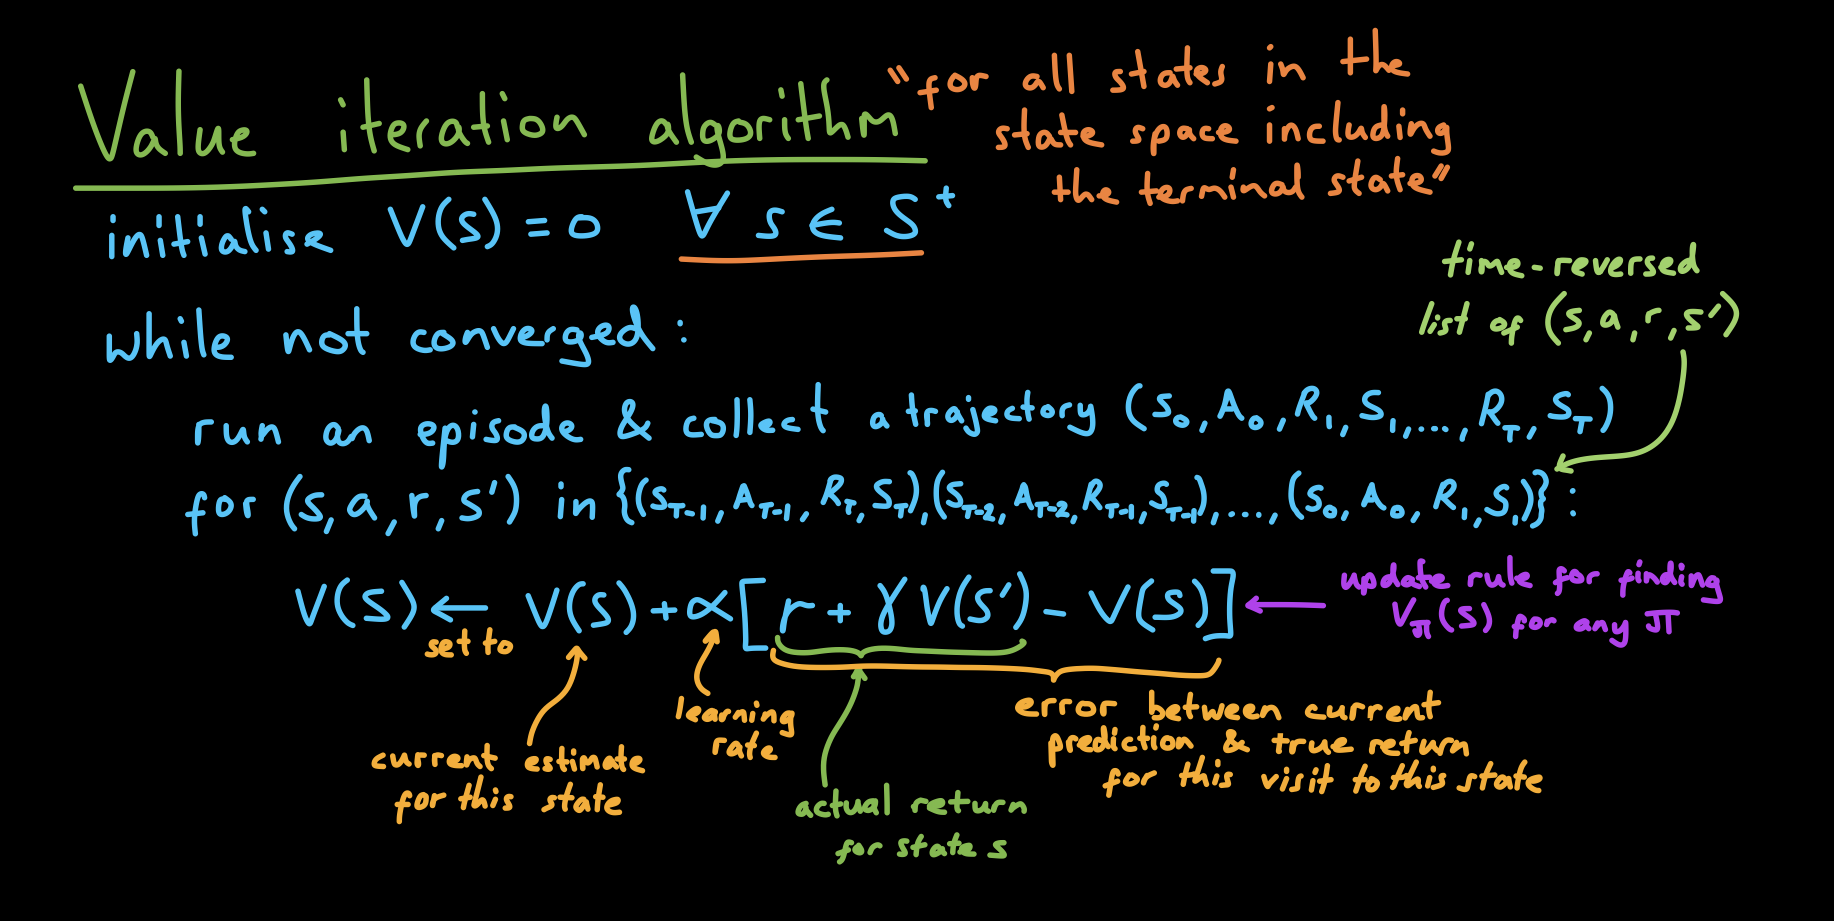 Value iteration algorithm
"for all states in the
state space including
the terminal state"
initialise V(s) = 0 ∀ s ∈ S⁺
time-reversed
list of (s, a, r, s')
while not converged:
run an episode & collect a trajectory (S₀, A₀, R₁, S₁, ..., R_T, S_T)
for (s, a, r, s') in {(S_{T-1}, A_{T-1}, R_T, S_T), (S_{T-2}, A_{T-2}, R_{T-1}, S_{T-1}), ..., (S₀, A₀, R₁, S₁)}:
V(s) ← V(s) + α[r + γV(s') - V(s)]
update rule for finding
V_π(s) for any π
set to
current estimate
for this state
learning
rate
actual return
for state s
error between current
prediction & true return
for this visit to this state